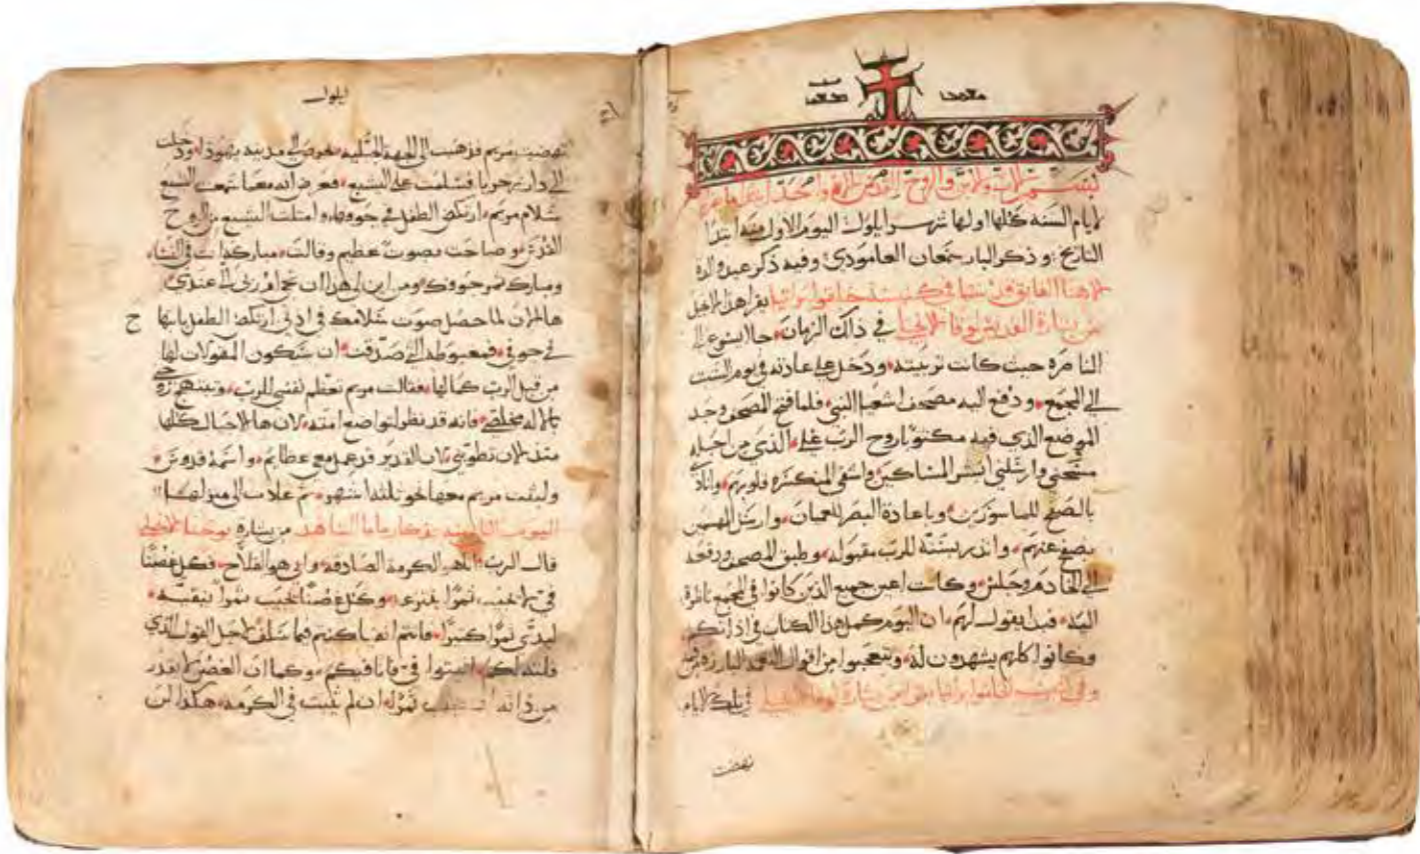 بسم الاب والابن والروح القدس الاه واحد
لايام السنه كلها اولها شهر ايلول اليوم الاول منه ابتدا
التاريخ وذكر البار سمعان العامودي وفيه ذكر عيد والدة
الاهنا في كنيسة يقرا هذا الانجيل
من بشارة القديس لوقا في ذاك الزمان جا ايسوع الى
الناصرة حيث كانت تربيته ودخل على عادته في يوم السبت
الى المجمع ودفع اليه مصحف اشعيا النبي فلما فتح المصحف وجد
الموضع الذي فيه مكتوبا روح الرب علي الذي من اجله
مسحني وارسلني ابشر المساكين واشفي المنكسرة قلوبهم وانادي
بالصفح للماسورين وباعادة البصر للعميان وارسل
بصفح عنهم وانذر بسنة للرب مقبوله وطبق المصحف ودفعه
الى الخادم وجلس وكانت اعين جميع الذين كانوا في المجمع ناظرة
اليه فبدا يقول لهم ان اليوم كمل هذا الكتاب في اذانكم
وكانوا كلهم يشهدون له وتعجبوا من اقوال
من بشارة لوقا في تلك الايام
نهضت
ايلول
نهضت مريم فذهبت الى الجهة الجبلية بحرص الى مدينة يهوذا ودخلت
الى دار زخريا فسلمت على اليشبع فعرض انه معما سمعت اليشبع
سلام مريم ارتكض الطفل في جوفها وامتلت اليشبع من الروح
القدس وصاحت بصوت عظيم وقالت مباركة انت في النسا
ومبارك ثمر جوفك ومن اين لي هذا ان تجي ام ربي الى عندي
ها لان لما حصل صوت سلامك في اذني ارتكض الطفل بابتهاج
في جوفي فمغبوطة التي صدقت ان ستكون المقولات لها
من قبل الرب كمالها فقالت مريم تعظم نفسي للرب وتبتهج روحي
بالاله مخلصي فانه قد نظر لتواضع امته لان ها الاجيال كلها
منذ الان تطوبني لان القدير قد عمل معي عظايم واسمه قدوس
ولبثت مريم معها نحو ثلثة اشهر ثم عادت الى منزلها
اليوم الثاني منه تذكار ماما الشاهد من بشارة يوحنا الانجيلي
قال الرب انا هو الكرمة الصادقه وابي هو الفلاح فكل غصن
في لا يجيب ثمرا ينزعه وكل غصن يجيب ثمرا ينقيه
ليودي ثمرا كثيرا فانتم انقيا كنتم فيما سلف لاجل القول الذي
قلته لكم اثبتوا في وانا فيكم وكما ان الغصن لا يقدر
من ذاته ان يجيب ثمرا ان لم يثبت في الكرمه هكذا لن